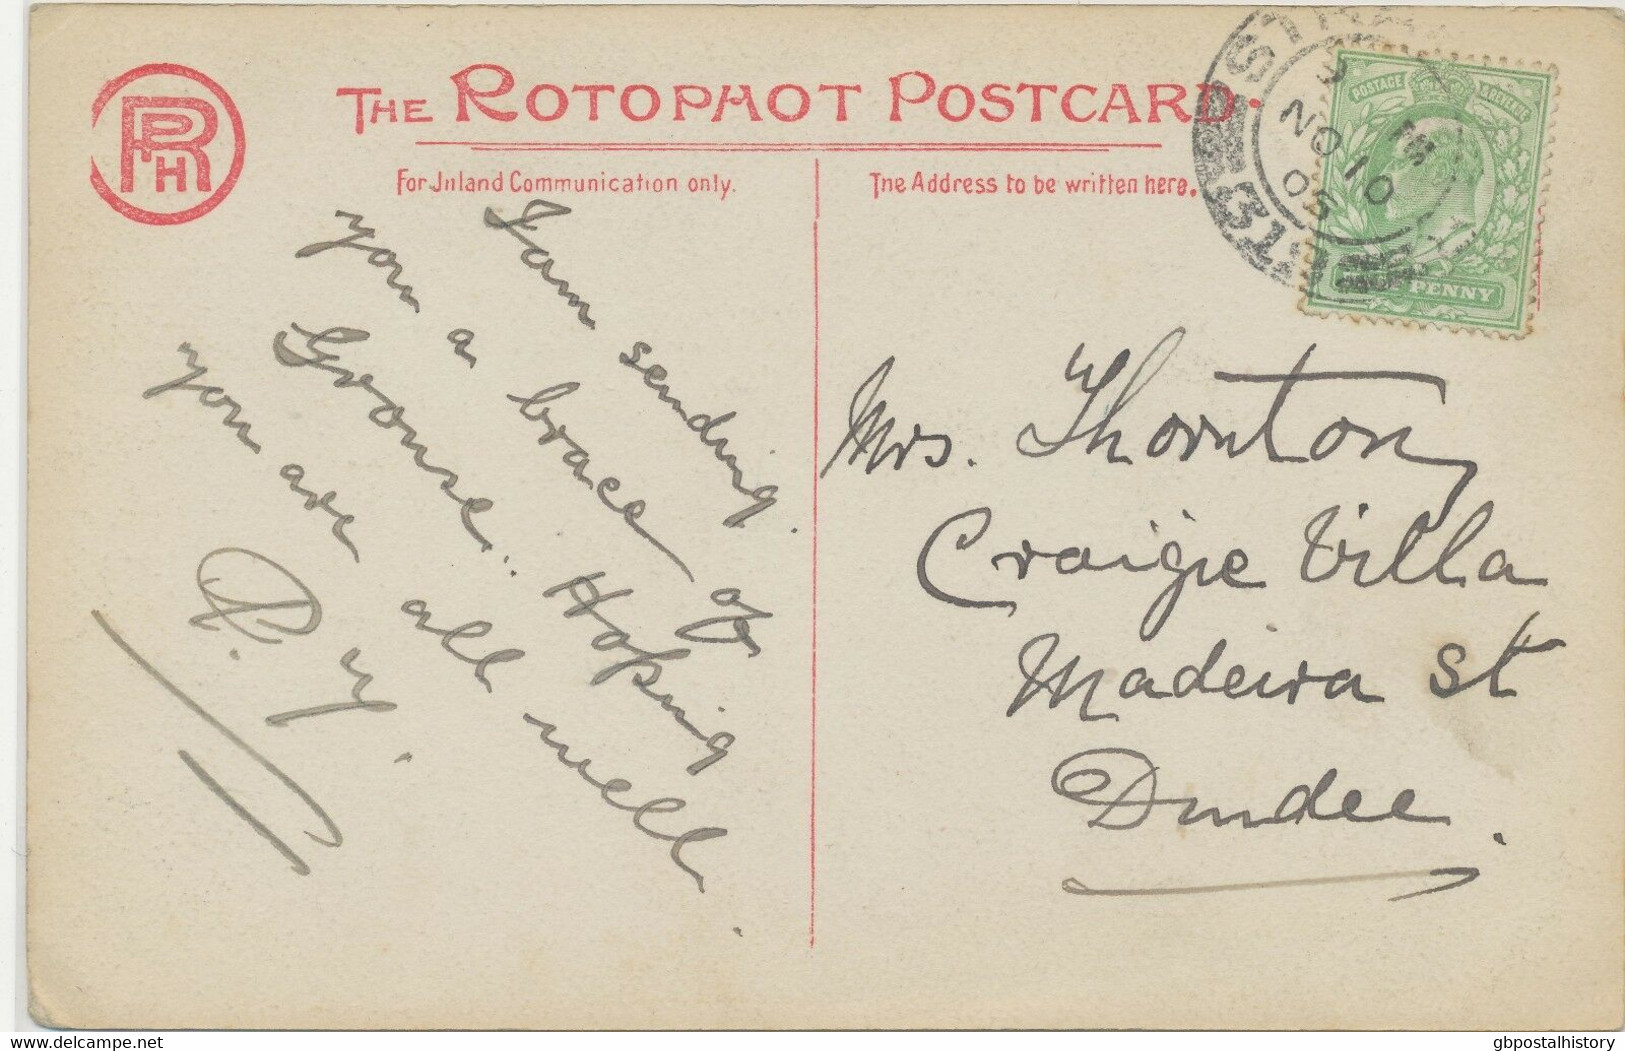 THE ROTOPHOT POSTCARD.
RPH
For Inland Communication only.
The Address to be written here.
I am sending
you a brace of
Grouse. Hoping
you are all well.
POSTAGE
PENNY
NO 10
05
Mrs. Thornton
Craigie Villa
Madeira St
Dundee.
delcampe.net
gbpostalhistory